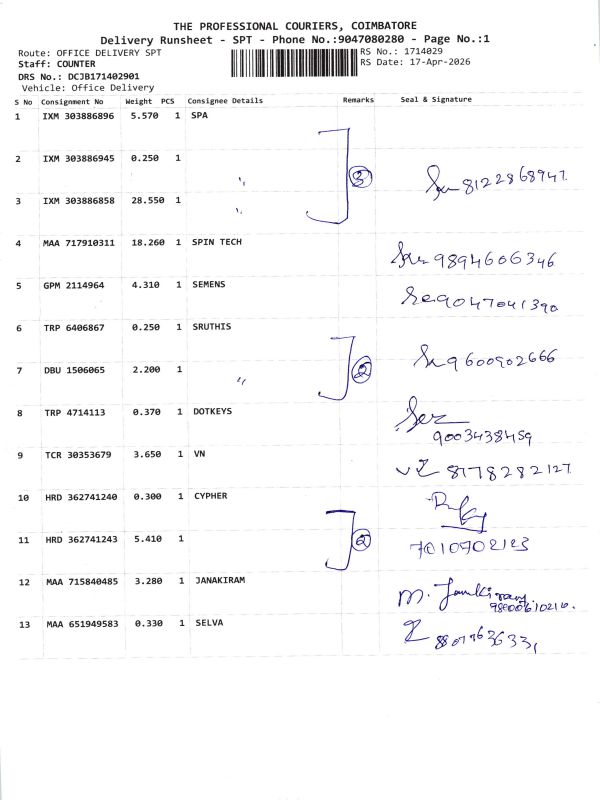 THE PROFESSIONAL COURIERS, COIMBATORE
Delivery Runsheet - SPT - Phone No.:9047080280 - Page No.:1
Route: OFFICE DELIVERY SPT RS No.: 1714029
Staff: COUNTER RS Date: 17-Apr-2026
DRS No.: DCJB171402901
Vehicle: Office Delivery
S No Consignment No Weight PCS Consignee Details Remarks Seal & Signature
1 IXM 303886896 5.570 1 SPA
2 IXM 303886945 0.250 1 " 3 8122868947
3 IXM 303886858 28.550 1 "
4 MAA 717910311 18.260 1 SPIN TECH 9894606346
5 GPM 2114964 4.310 1 SEMENS 9047041390
6 TRP 6406867 0.250 1 SRUTHIS 9600902666
7 DBU 1506065 2.200 1 " 2
8 TRP 4714113 0.370 1 DOTKEYS
9003438459
9 TCR 30353679 3.650 1 VN 8778282127
10 HRD 362741240 0.300 1 CYPHER
11 HRD 362741243 5.410 1 2 7010902123
12 MAA 715840485 3.280 1 JANAKIRAM M.
13 MAA 651949583 0.330 1 SELVA